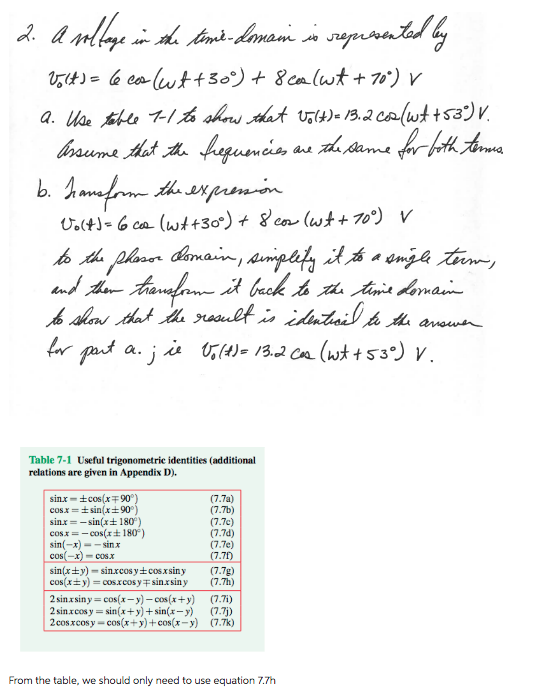 2. A voltage in the time-domain is represented by
v₀(t) = 6 cos(ωt + 30°) + 8 cos(ωt + 70°) V
a. Use table 7-1 to show that v₀(t) = 13.2 cos(ωt + 53°) V.
Assume that the frequencies are the same for both terms.
b. Transform the expression
v₀(t) = 6 cos (ωt + 30°) + 8 cos (ωt + 70°) V
to the phasor domain, simplify it to a single term,
and then transform it back to the time domain
to show that the result is identical to the answer
for part a. ; ie v₀(t) = 13.2 cos (ωt + 53°) V.
Table 7-1 Useful trigonometric identities (additional
relations are given in Appendix D).
sin x = ± cos(x ∓ 90°) (7.7a)
cos x = ± sin(x ± 90°) (7.7b)
sin x = − sin(x ± 180°) (7.7c)
cos x = − cos(x ± 180°) (7.7d)
sin(−x) = − sin x (7.7e)
cos(−x) = cos x (7.7f)
sin(x ± y) = sin x cos y ± cos x sin y (7.7g)
cos(x ± y) = cos x cos y ∓ sin x sin y (7.7h)
2 sin x sin y = cos(x − y) − cos(x + y) (7.7i)
2 sin x cos y = sin(x + y) + sin(x − y) (7.7j)
2 cos x cos y = cos(x + y) + cos(x − y) (7.7k)
From the table, we should only need to use equation 7.7h